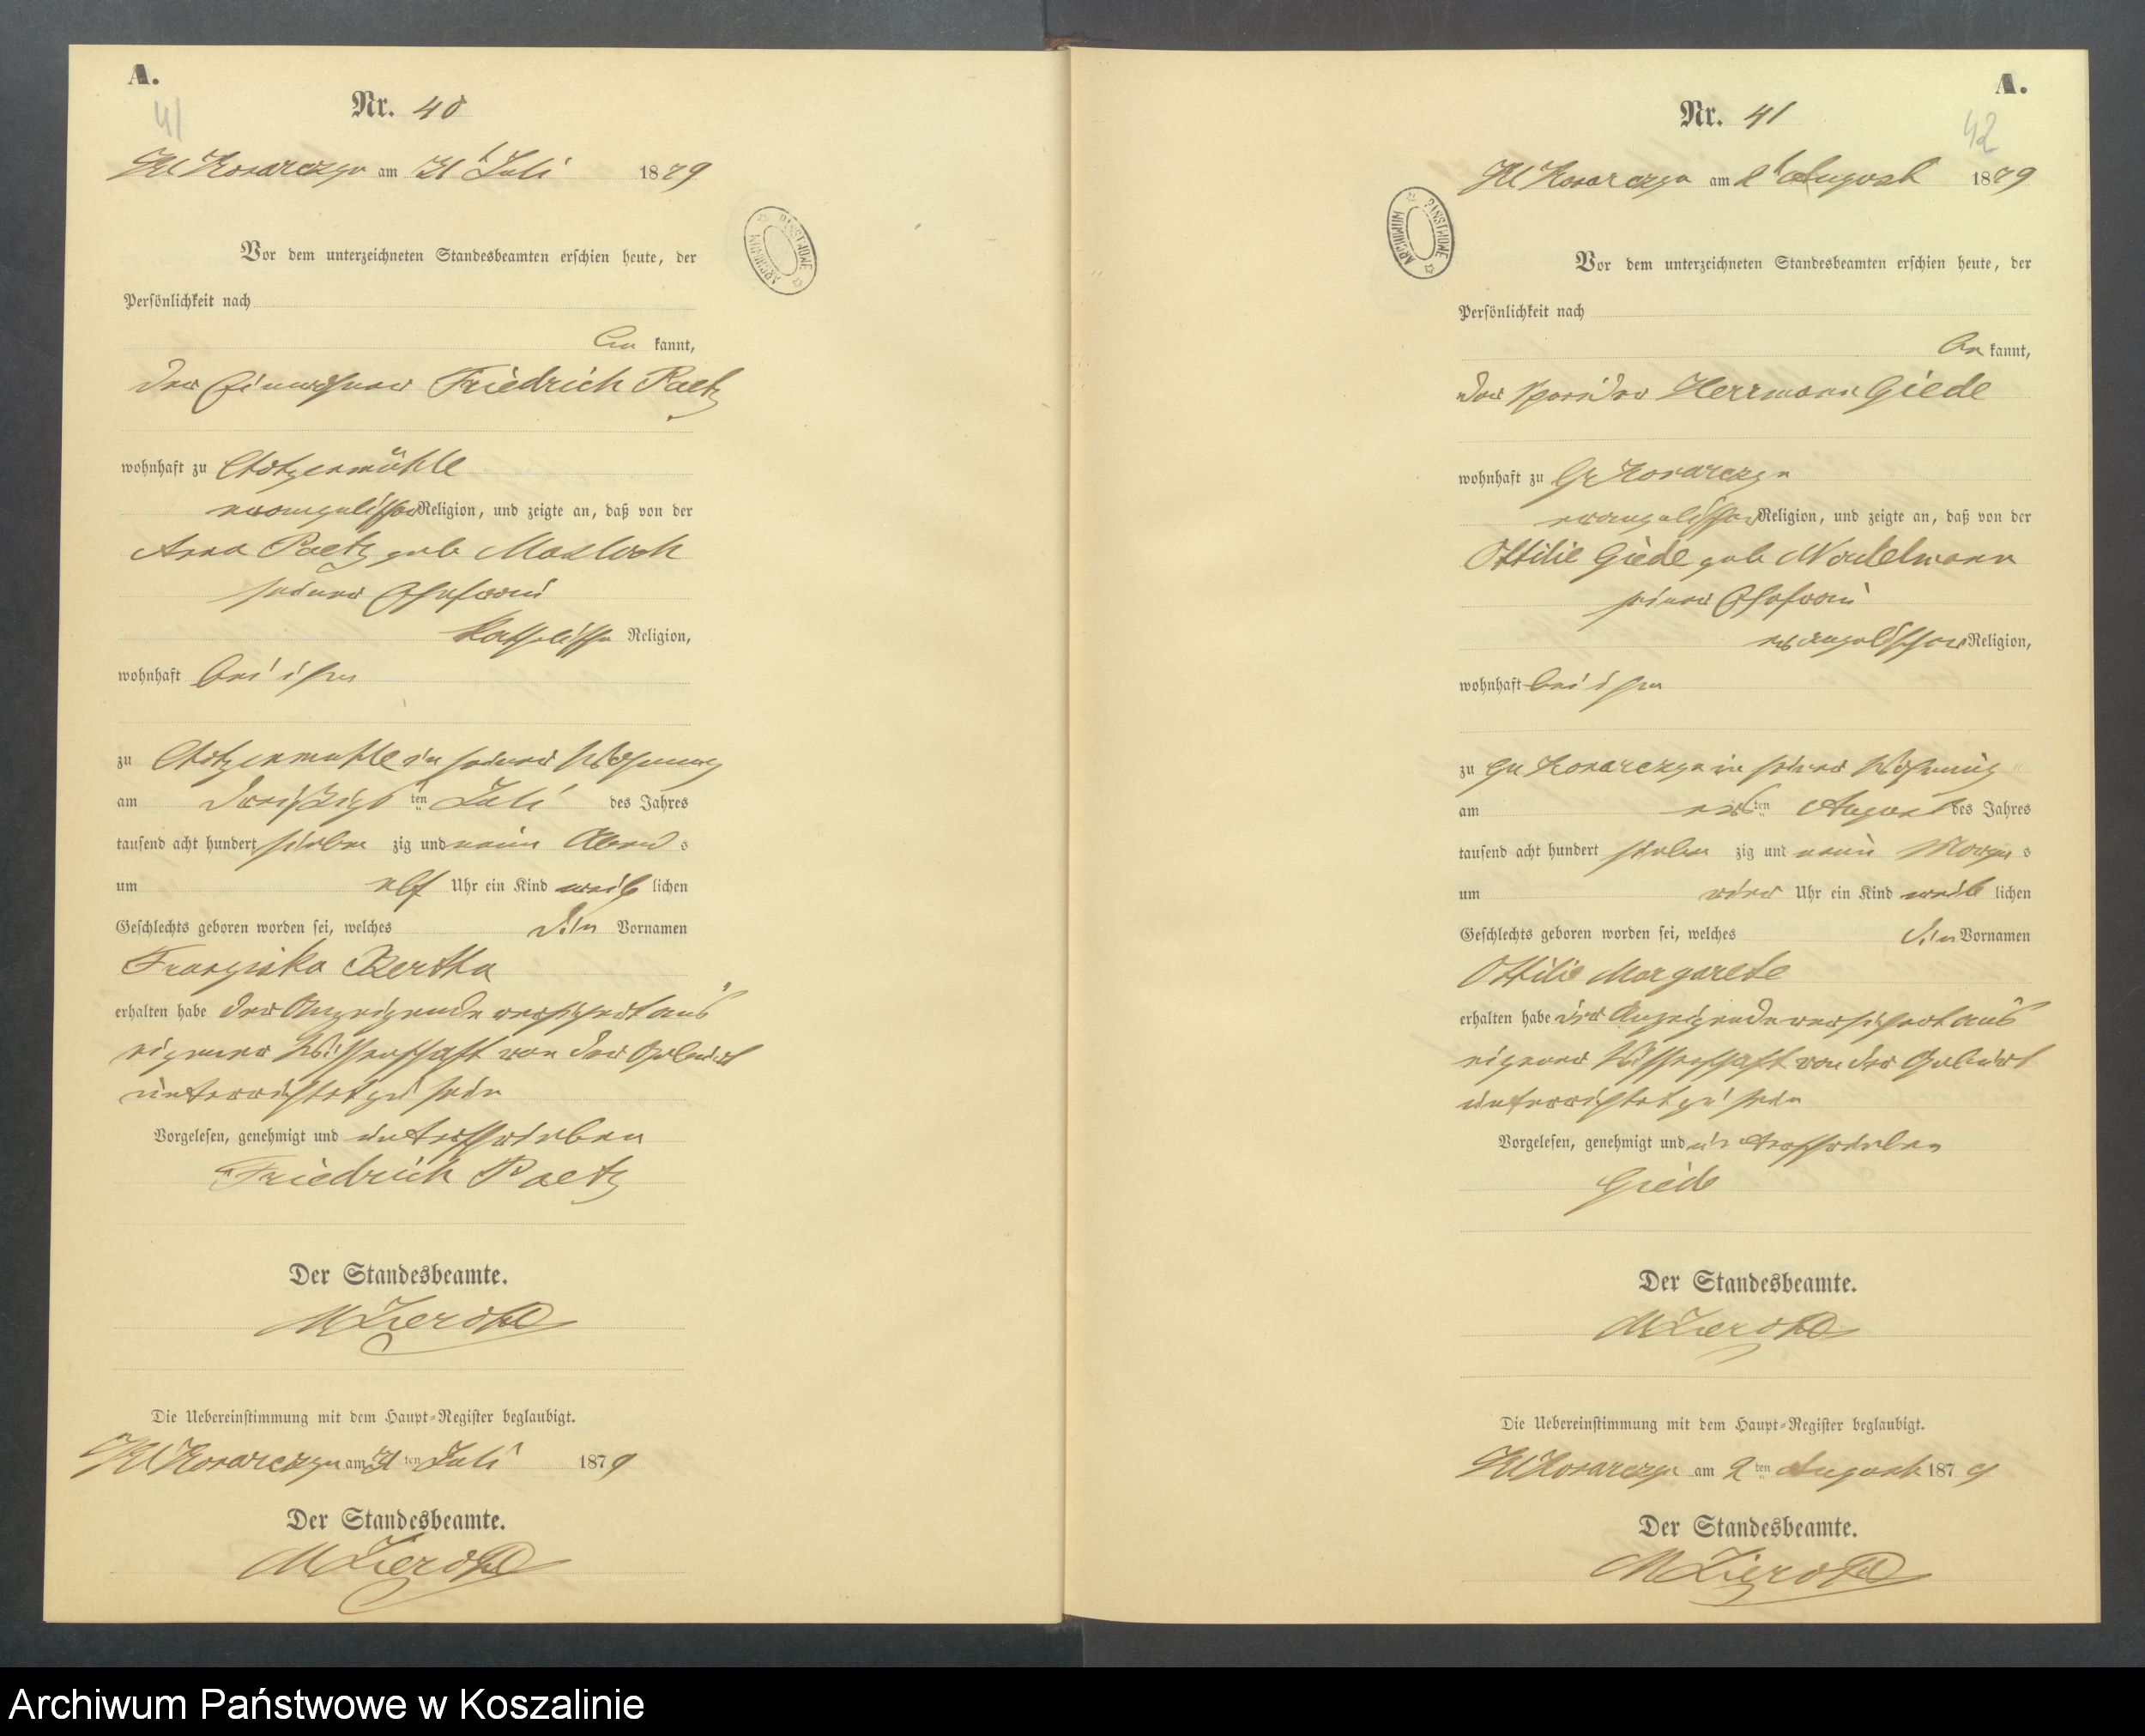 A.
41
Nr. 40
Kl Konarczyn am 31 t Juli 1879
ARCHIWUM PAŃSTWOWE
Vor dem unterzeichneten Standesbeamten erschien heute, der
Persönlichkeit nach
be kannt,
der Einwohner Friedrich Paetz
wohnhaft zu
evangelischer Religion, und zeigte an, daß von der
Anna Paetz geb
seiner Ehefrau
katholischer Religion,
wohnhaft bei ihm
zu in seiner Wohnung
am dreißigsten Juli des Jahres
tausend acht hundert sieben zig und neun Abend s
um elf Uhr ein Kind weib lichen
Geschlechts geboren worden sei, welches die Vornamen
Franziska Bertha
erhalten habe der Anzeigende versichert aus
eigener Wissenschaft von der Geburt
unterrichtet zu sein
Vorgelesen, genehmigt und unterschrieben
Friedrich Paetz
Der Standesbeamte.
Die Uebereinstimmung mit dem Haupt-Register beglaubigt.
Kl Konarczyn am 31 ten Juli 1879
Der Standesbeamte.
A.
42
Nr. 41
Kl Konarczyn am 2 t August 1879
ARCHIWUM PAŃSTWOWE
Vor dem unterzeichneten Standesbeamten erschien heute, der
Persönlichkeit nach
be kannt,
der Herrmann Giede
wohnhaft zu Gr Konarczyn
evangelischer Religion, und zeigte an, daß von der
Ottilie Giede geb
seiner Ehefrau
evangelischer Religion,
wohnhaft bei ihm
zu Gr Konarczyn in seiner Wohnung
am ersten August des Jahres
tausend acht hundert sieben zig und neun Morgen s
um vier Uhr ein Kind weib lichen
Geschlechts geboren worden sei, welches die Vornamen
Ottilie Margarete
erhalten habe der Anzeigende versichert aus
eigener Wissenschaft von der Geburt
unterrichtet zu sein
Vorgelesen, genehmigt und unterschrieben
Giede
Der Standesbeamte.
Die Uebereinstimmung mit dem Haupt-Register beglaubigt.
Kl Konarczyn am 2 ten August 1879
Der Standesbeamte.
Archiwum Państwowe w Koszalinie